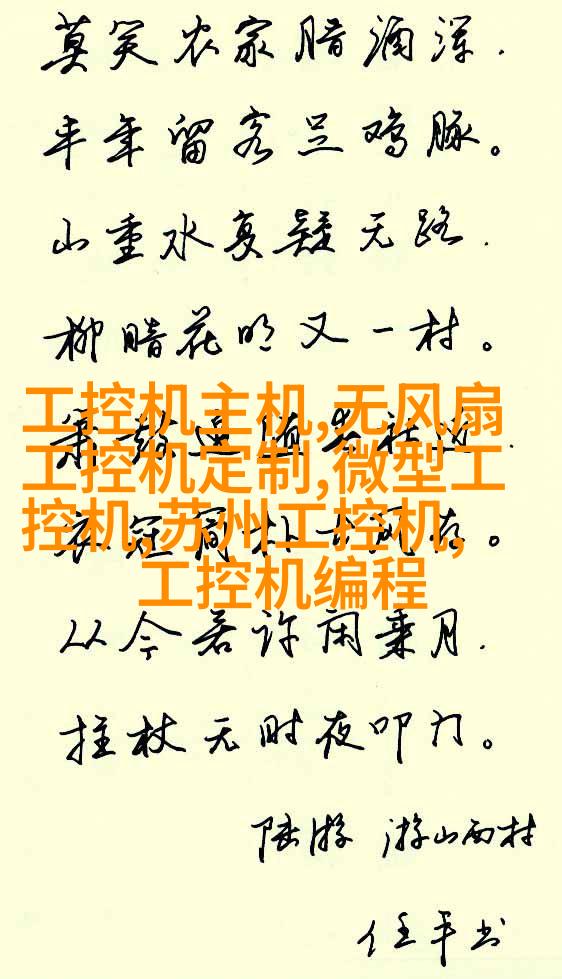 莫笑农家腊酒浑.
丰年留客足鸡豚。
山重水复疑无路.
柳暗花明又一村。
工控机主机,无风扇
工控机定制,微型工
控机,苏州工控机,
工控机编程
从今若许闲乘月.
拄杖无时夜叩门。
陆游 游山西村
任平书